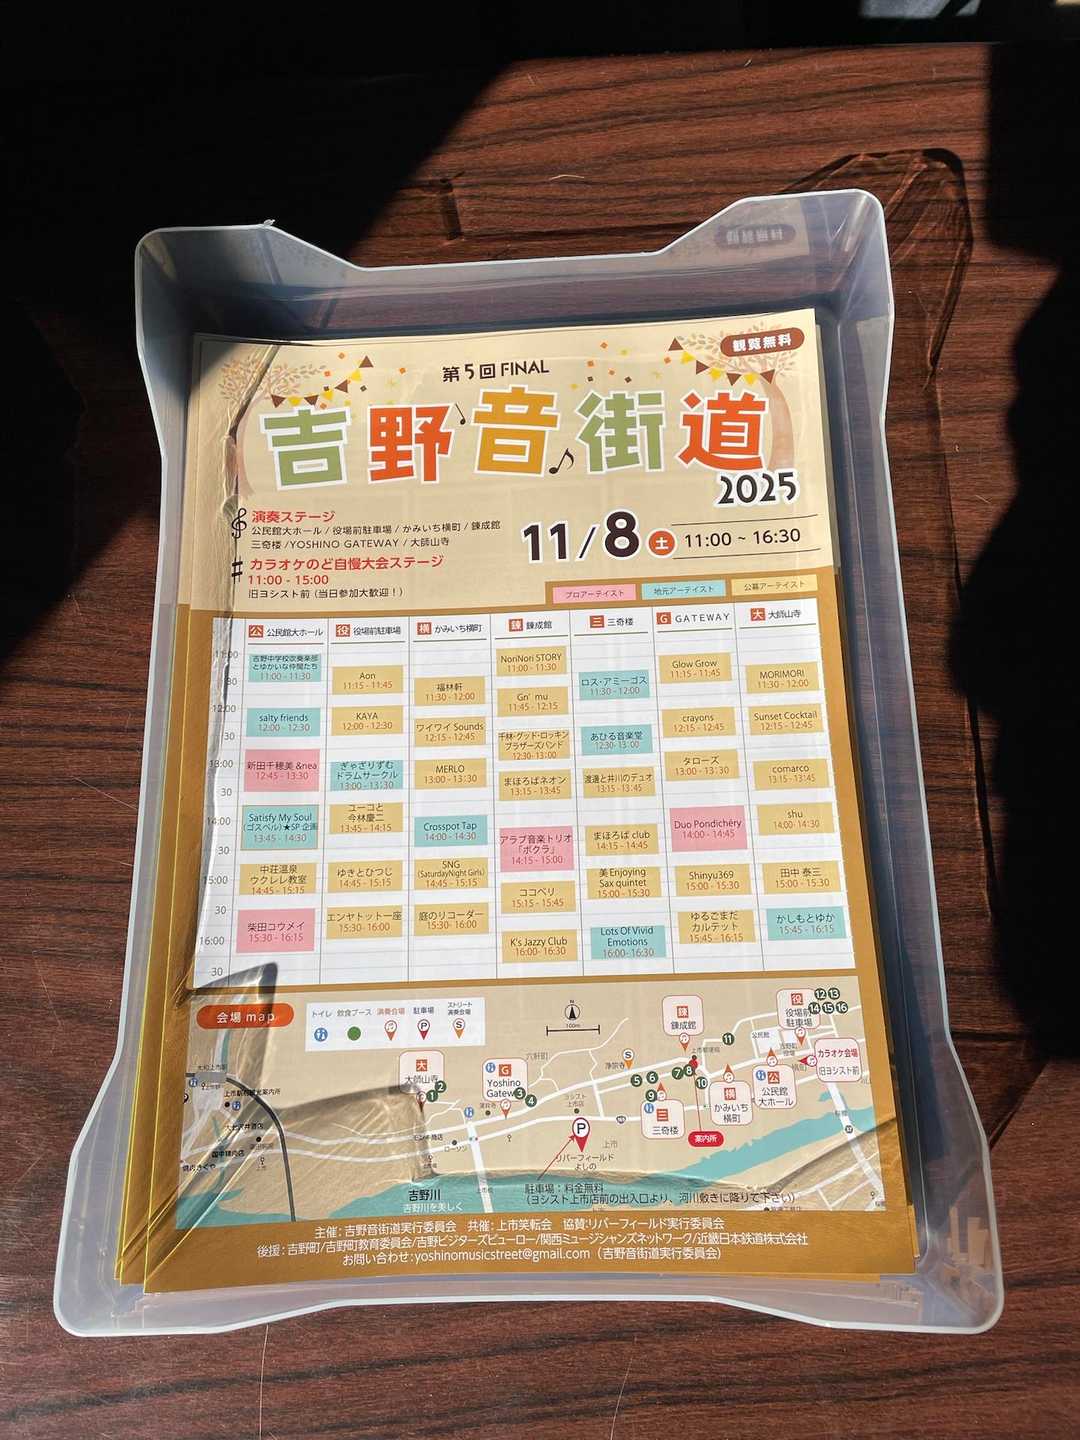 観覧無料
第5回 FINAL
吉野音街道
2025
演奏ステージ
公民館大ホール / 役場前駐車場 / かみいち横町 / 錬成館
三奇楼 / YOSHINO GATEWAY / 大師山寺
11/8 土 11:00 ~ 16:30
カラオケのど自慢大会ステージ
11:00 - 15:00
旧ヨシスト前 (当日参加大歓迎！)
プロアーテイスト 地元アーテイスト 公募アーテイスト
公 公民館大ホール
吉野中学校吹奏楽部
とゆかいな仲間たち
11:00 - 11:30
salty friends
12:00 - 12:30
新田千穂美 &nea
12:45 - 13:30
Satisfy My Soul
(ゴスペル)★SP 企画
13:45 - 14:30
中荘温泉
ウクレレ教室
14:45 - 15:15
柴田コウメイ
15:30 - 16:15
役 役場前駐車場
Aon
11:15 - 11:45
KAYA
12:00 - 12:30
ぎゃざりずむ
ドラムサークル
13:00 - 13:30
ユーコと
今林慶二
13:45 - 14:15
ゆきとひつじ
14:45 - 15:15
エンヤトット一座
15:30 - 16:00
横 かみいち横町
福林軒
11:30 - 12:00
ワイワイ Sounds
12:15 - 12:45
MERLO
13:00 - 13:30
Crosspot Tap
14:00 - 14:30
SNG
(SaturdayNight Girls)
14:45 - 15:15
庭のリコーダー
15:30 - 16:00
錬 錬成館
NoriNori STORY
11:00 - 11:30
Gn' mu
11:45 - 12:15
千林・グッド・ロッキン
ブラザーズバンド
12:30 - 13:00
まほろばネオン
13:15 - 13:45
アラブ音楽トリオ
「ボクラ」
14:15 - 15:00
ココペリ
15:15 - 15:45
K's Jazzy Club
16:00 - 16:30
三 三奇楼
ロス・アミーゴス
11:30 - 12:00
あひる音楽堂
12:30 - 13:00
渡邊と井川のデュオ
13:15 - 13:45
まほろば club
14:15 - 14:45
美 Enjoying
Sax quintet
15:00 - 15:30
Lots Of Vivid
Emotions
16:00 - 16:30
G GATEWAY
Glow Grow
11:15 - 11:45
crayons
12:15 - 12:45
タローズ
13:00 - 13:30
Duo Pondichéry
14:00 - 14:45
Shinyu369
15:00 - 15:30
ゆるごまだ
カルテット
15:45 - 16:15
大 大師山寺
MORIMORI
11:30 - 12:00
Sunset Cocktail
12:15 - 12:45
comarco
13:15 - 13:45
shu
14:00 - 14:30
田中 泰三
15:00 - 15:30
かしもとゆか
15:45 - 16:15
11:00
30
12:00
30
13:00
30
14:00
30
15:00
30
16:00
30
会場 map
トイレ 飲食ブース 演奏会場 駐車場 ストリート演奏会場
N
100m
大
大師山寺
1 2
G
Yoshino
Gateway
3 4
六軒町
浄宗寺
S
5 6
9
三
三奇楼
錬
錬成館
上市郵便局
7 8
10
11
案内所
横
かみいち
横町
公民館
公
公民館
大ホール
吉野町
役場
役
役場前
駐車場
12 13
14 15 16
カラオケ会場
旧ヨシスト前
ヨシスト
上市店
P
リバーフィールド
よしの
上市
ローソン
吉野川
吉野川を美しく
駐車場：料金無料
(ヨシスト上市店前の出入口より、河川敷きに降りて下さい)
主催：吉野音街道実行委員会 共催：上市笑転会 協賛:リバーフィールド実行委員会
後援：吉野町/吉野町教育委員会/吉野ビジターズビューロー/関西ミュージシャンズネットワーク/近畿日本鉄道株式会社
お問い合わせ:yoshinomusicstreet@gmail.com (吉野音街道実行委員会)